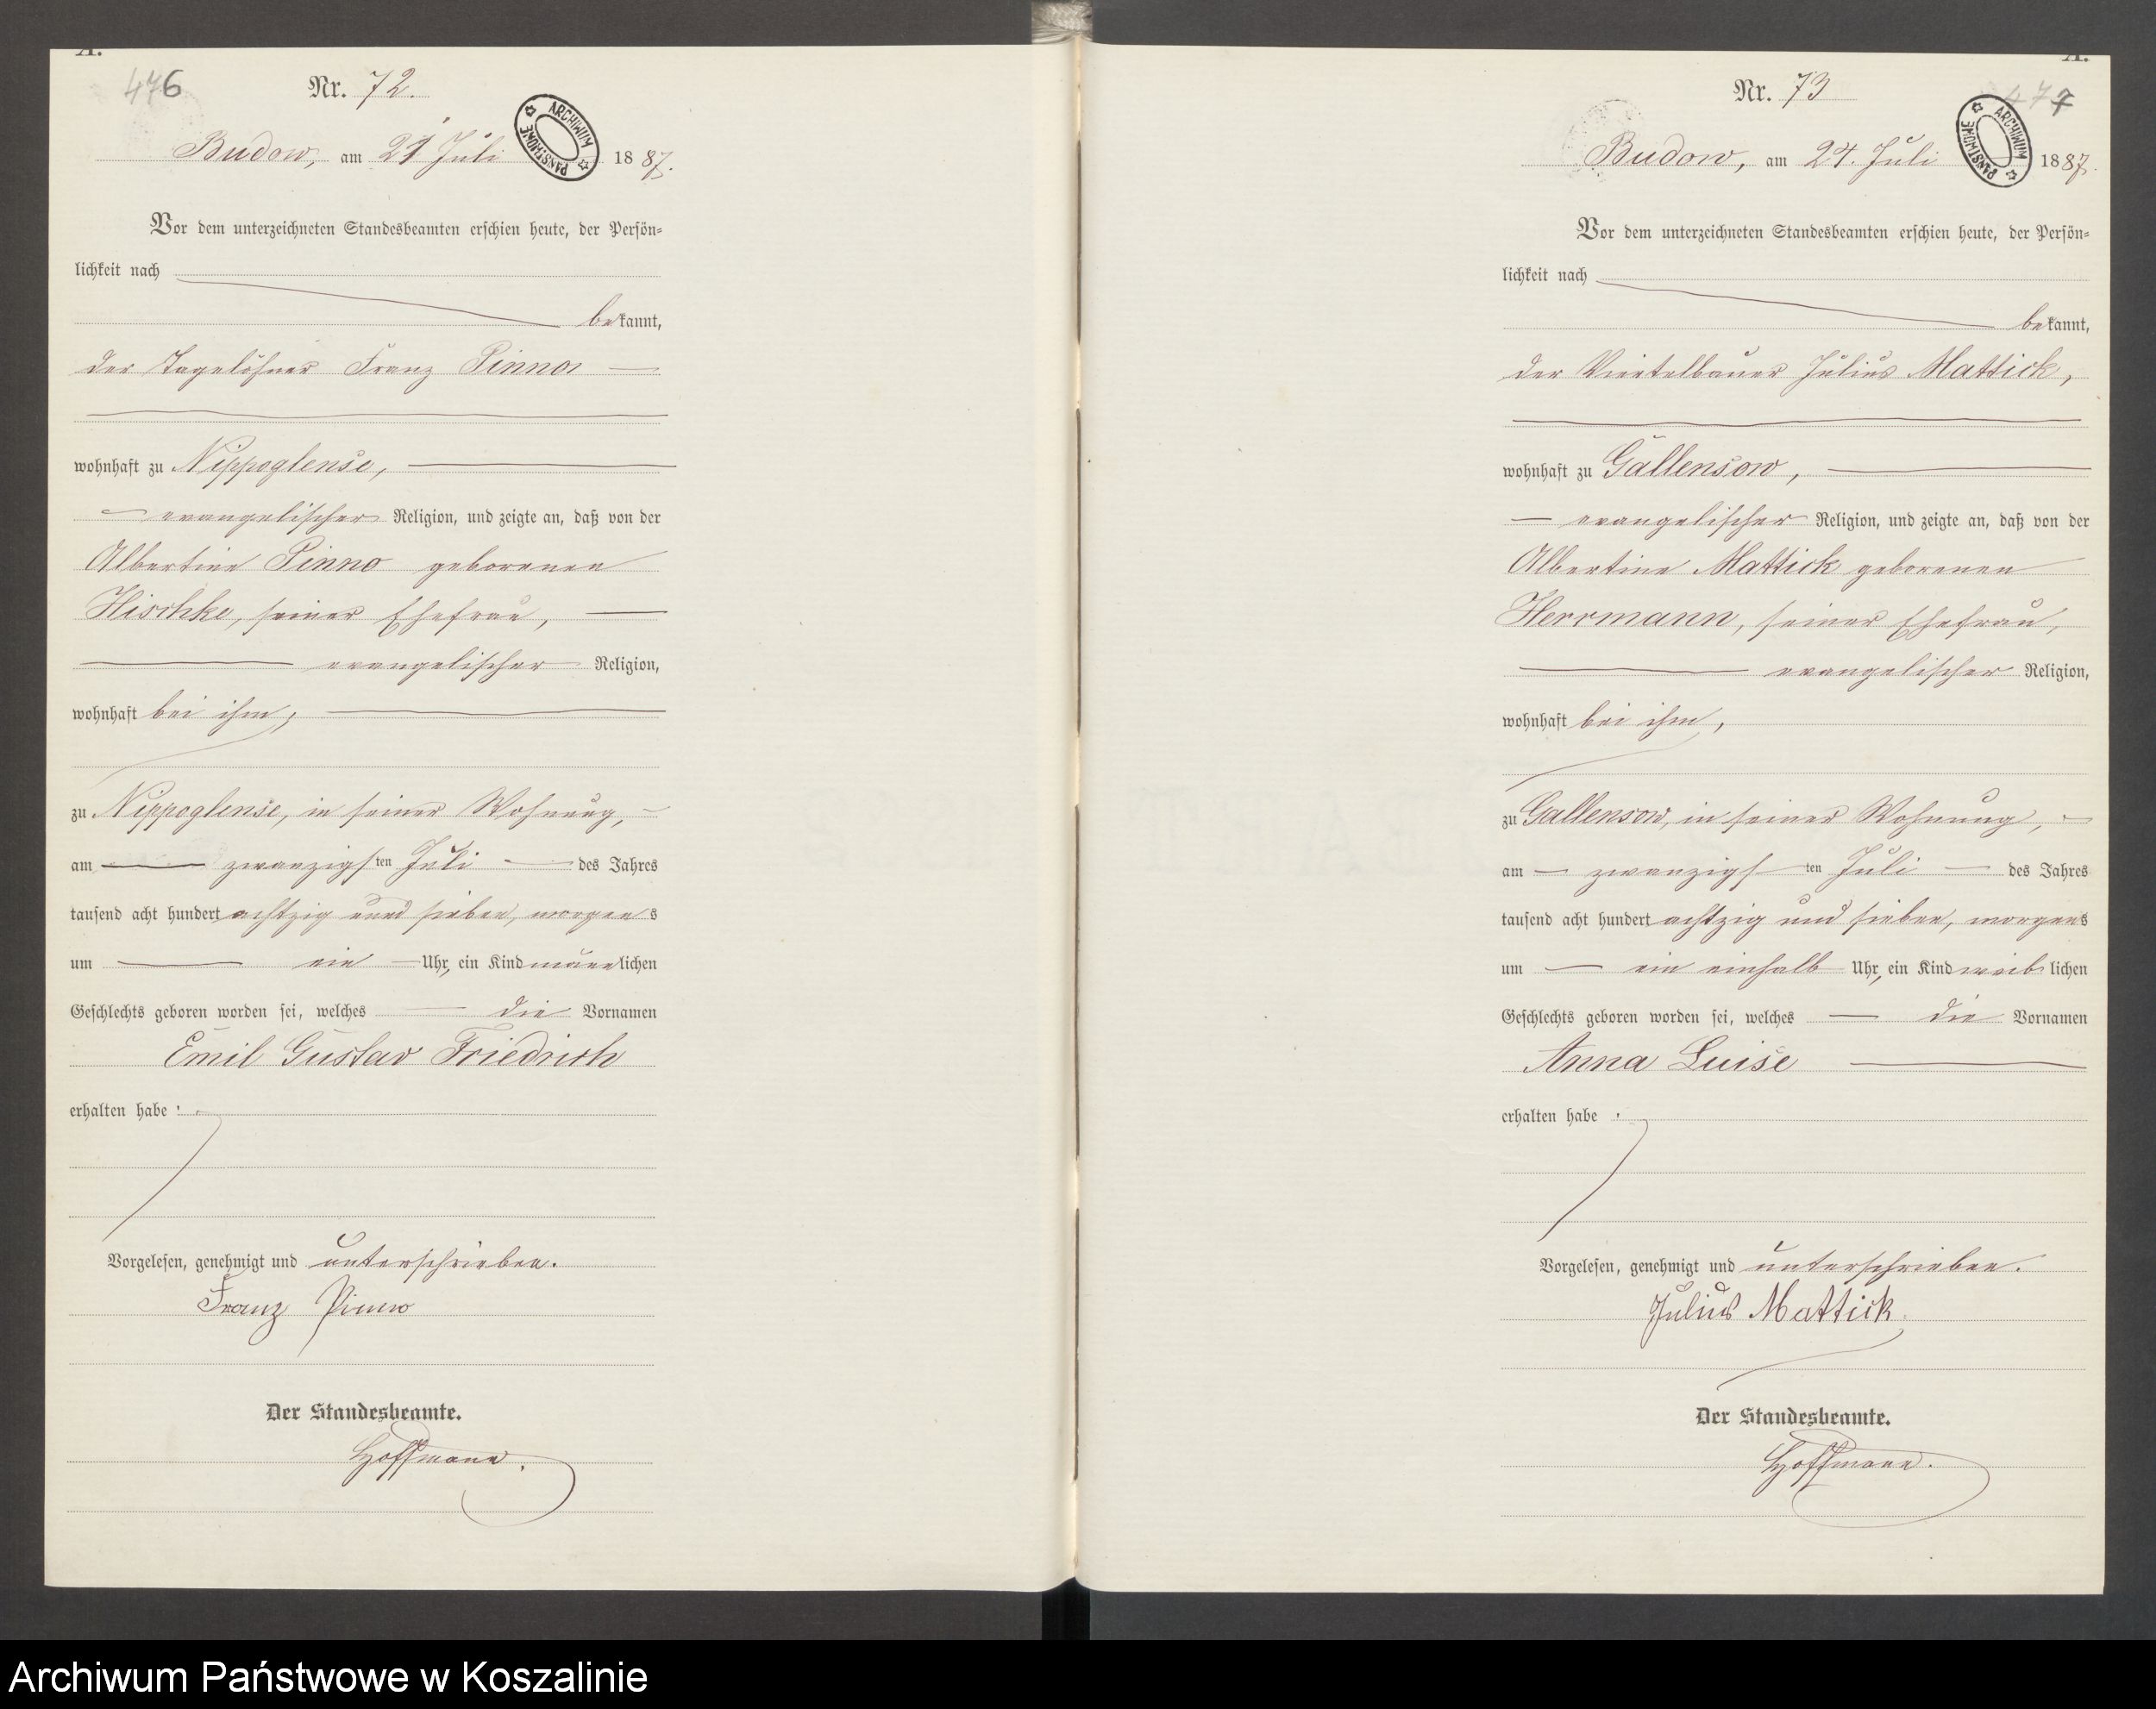 A.
476
Nr. 72.
Budow, am 21 Juli 1887.
ARCHIWUM PAŃSTWOWE
Vor dem unterzeichneten Standesbeamten erschien heute, der Persön-
lichkeit nach
bekannt,
der Tagelöhner Franz Pinno
wohnhaft zu Nippoglense,
evangelischer Religion, und zeigte an, daß von der
Albertine Pinno geborenen
Hischke, seiner Ehefrau,
evangelischer Religion,
wohnhaft bei ihm,
zu Nippoglense, in seiner Wohnung,
am zwanzigsten Juli des Jahres
tausend acht hundert achtzig und sieben, morgens
um ein Uhr, ein Kind männlichen
Geschlechts geboren worden sei, welches die Vornamen
Emil Gustav Friedrich
erhalten habe.
Vorgelesen, genehmigt und unterschrieben.
Franz Pinno
Der Standesbeamte.
Hoffmann.
A.
477
Nr. 73
Budow, am 24. Juli 1887.
ARCHIWUM PAŃSTWOWE
Vor dem unterzeichneten Standesbeamten erschien heute, der Persön-
lichkeit nach
bekannt,
der Viertelbauer Julius Mattick,
wohnhaft zu Gallensow,
evangelischer Religion, und zeigte an, daß von der
Albertine Mattick geborenen
Herrmann, seiner Ehefrau,
evangelischer Religion,
wohnhaft bei ihm,
zu Gallensow, in seiner Wohnung,
am zwanzigsten Juli des Jahres
tausend acht hundert achtzig und sieben, morgens
um ein einhalb Uhr, ein Kind weiblichen
Geschlechts geboren worden sei, welches die Vornamen
Anna Luise
erhalten habe.
Vorgelesen, genehmigt und unterschrieben.
Julius Mattick.
Der Standesbeamte.
Hoffmann.
Archiwum Państwowe w Koszalinie